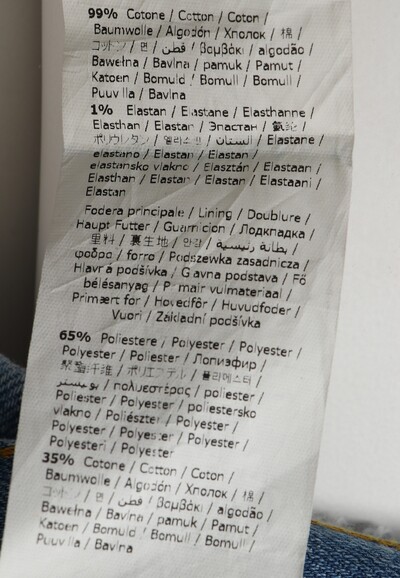 99% Cotone / Cotton / Coton /
Baumwolle / Algodón / Хлопок / 棉 /
コットン / 면 / قطن / βαμβάκι / algodão /
Bawełna / Bavlna / pamuk / Pamut /
Katoen / Bomuld / Bomull / Bomull /
Puuvilla / Bavlna
1% Elastan / Elastane / Elasthanne /
Elasthan / Elastan / Эластан / 氨纶 /
ポリウレタン / 엘라스틴 / الستان / Elastane /
elastano / Elastan / Elastan /
elastansko vlakno / Elasztán / Elastaan /
Elasthan / Elastan / Elastan / Elastaani /
Elastan
Fodera principale / Lining / Doublure /
Haupt Futter / Guarnicion / Подкладка /
里料 / 裏生地 / 안감 / بطانة رئيسية /
φόδρα / forro / Podszewka zasadnicza /
Hlavní podšívka / Glavna postava / Fő
bélésanyag / Primair vulmateriaal /
Primært for / Hovedfôr / Huvudfoder /
Vuori / Základní podšívka
65% Poliestere / Polyester / Polyester /
Polyester / Poliester / Полиэфир /
聚酯纤维 / ポリエステル / 폴리에스터 /
بوليستر / πολυεστέρας / poliester /
Poliester / Polyester / poliestersko
vlakno / Poliészter / Polyester /
Polyester / Polyester / Polyester /
Polyesteri / Polyester
35% Cotone / Cotton / Coton /
Baumwolle / Algodón / Хлопок / 棉 /
コットン / 면 / قطن / βαμβάκι / algodão /
Bawełna / Bavlna / pamuk / Pamut /
Katoen / Bomuld / Bomull / Bomull /
Puuvilla / Bavlna